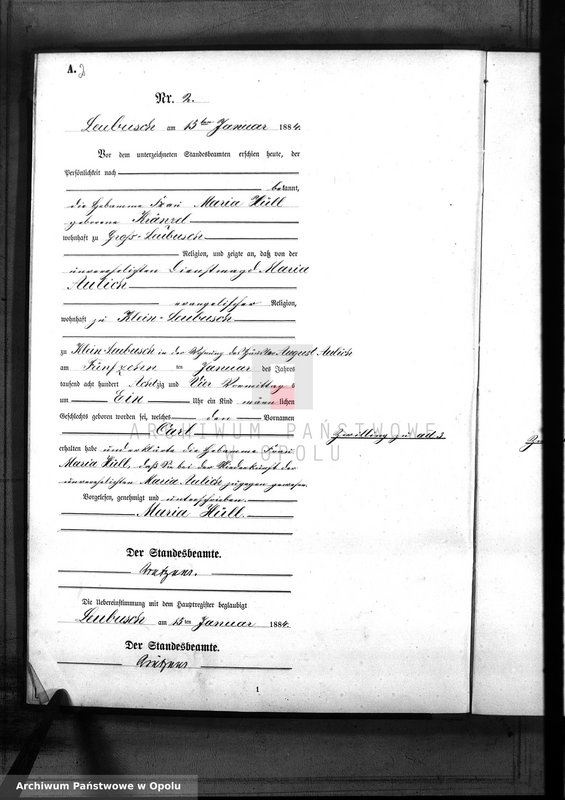 A. 2
Nr. 2.
Leubusch am 15ten Januar 1884.
Vor dem unterzeichneten Standesbeamten erschien heute, der
Persönlichkeit nach
bekannt,
die Hebamme Frau Maria Hüll
geborene
wohnhaft zu Groß-Leubusch
Religion, und zeigte an, daß von der
unverehelichten Dienstmagd Maria
Aulich
evangelischer Religion,
wohnhaft zu Klein-Leubusch
zu Klein-Leubusch in der Wohnung des August Aulich
am Fünfzehn ten Januar des Jahres
tausend acht hundert Achtzig und Vier Vormittags
um Ein Uhr ein Kind männlichen
Geschlechts geboren worden sei, welches den Vornamen
Carl
Zwilling zu
erhalten habe und erklärte die Hebamme Frau
Maria Hüll, daß sie bei der Niederkunft der
unverehelichten Maria Aulich zugegen gewesen.
Vorgelesen, genehmigt und unterschrieben.
Maria Hüll.
Der Standesbeamte.
Die Uebereinstimmung mit dem Hauptregister beglaubigt
Leubusch am 15ten Januar 1884.
Der Standesbeamte.
1
ARCHIWUM PAŃSTWOWE
W OPOLU
Archiwum Państwowe w Opolu